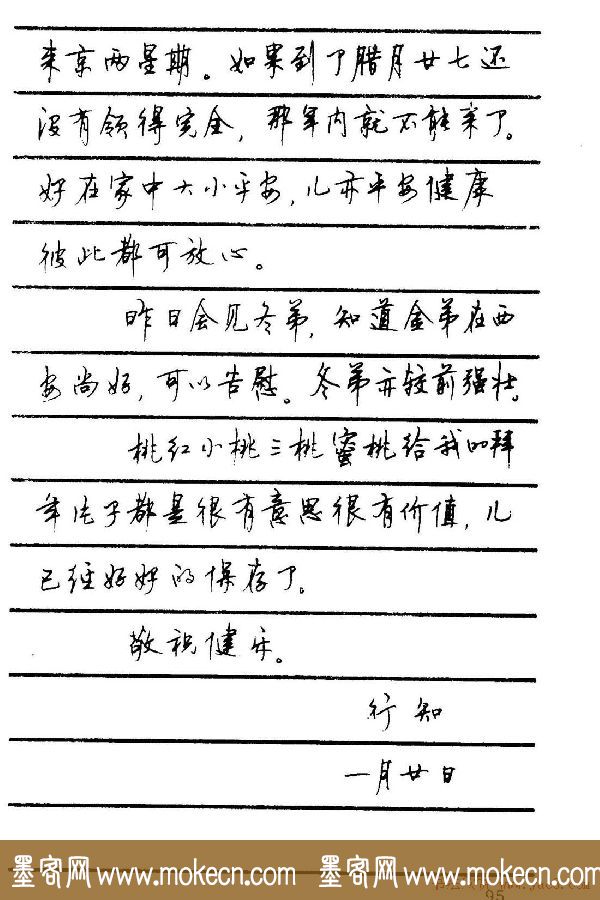 来京两星期。如果到了腊月廿七还
没有领得完全，那年内就不能来了。
好在家中大小平安，儿亦平安健康
彼此都可放心。
昨日会见冬弟，知道金弟在西
安尚好，可以告慰。冬弟亦较前强壮。
桃红小桃三桃蜜桃给我的拜
年法子都是很有意思很有价值，儿
已经好好的保存了。
敬祝健乐。
行知
一月廿日
墨客网 www.mokecn.com 墨客网 www.mokecn.com
95